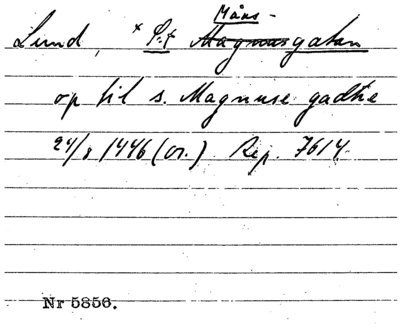 Måns-
Lund, * S:t Magnusgatan
op til s. Magnuse gadhe
24/8 1446 (or.) Rep. 7614.
Nr 5856.